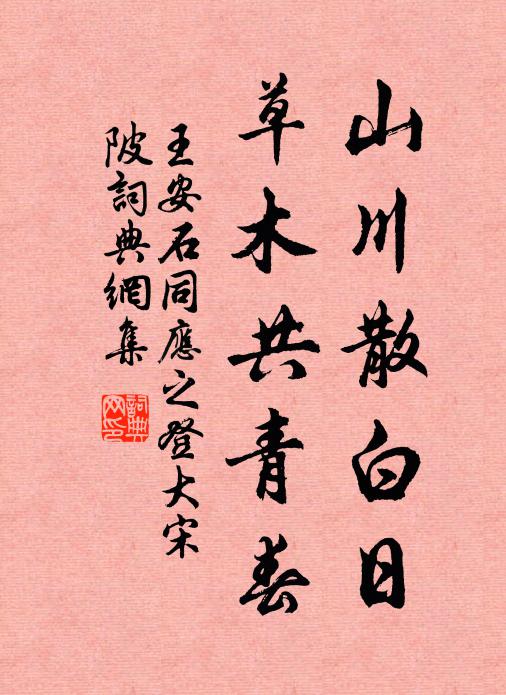 山川散白日
草木共青春
王安石同應之登大宋
陂詞典網集
詞典
網印